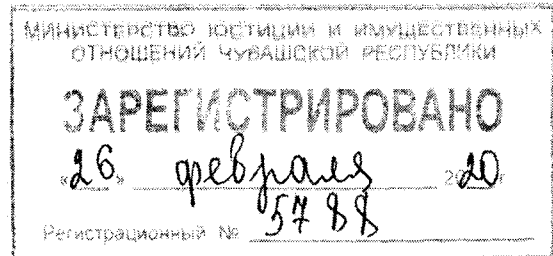 МИНИСТЕРСТВО ЮСТИЦИИ И ИМУЩЕСТВЕННЫХ
ОТНОШЕНИЙ ЧУВАШСКОЙ РЕСПУБЛИКИ
ЗАРЕГИСТРИРОВАНО
«26» февраля 2020г
Регистрационный № 5788